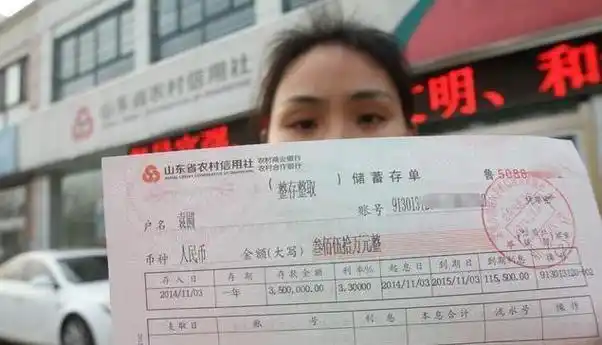 山东省农村信用社
文明、和
山东省农村信用社 农村商业银行
农村合作银行
(整存整取) 储蓄存单
鲁5088
户名 袁圆
账号 913013
币种 人民币 金额(大写) 叁佰伍拾万元整
存入日 存期 存款金额 利率% 起息日 到期日 到期利息 操作
2014/11/03 一年 3,500,000.00 3.30000 2014/11/03 2015/11/03 115,500.00
支取日 账号 利息 本息合计 流水号 操作